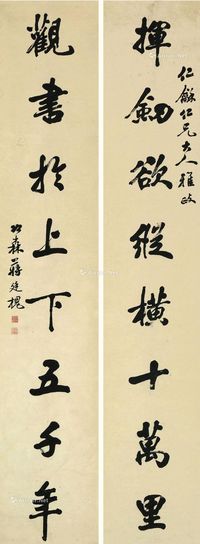 仁餘仁兄大人雅政
揮劍欲縱橫十萬里
觀書於上下五千年
蔣廷